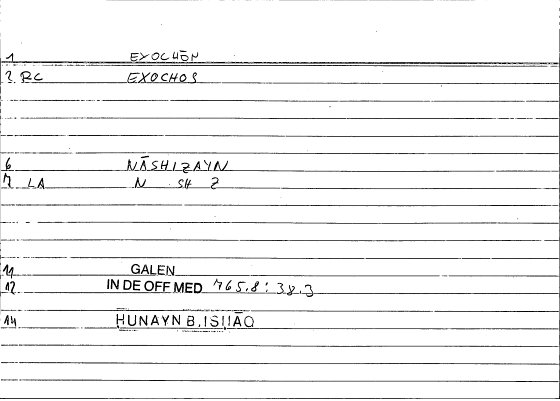 1 EXOCHŌN
2 RC EXOCHOS
6 NĀSHIZAYN
7 LA N SH Z
11 GALEN
12 IN DE OFF MED 765.8:38.3
14 HUNAYN B. ISḤĀQ